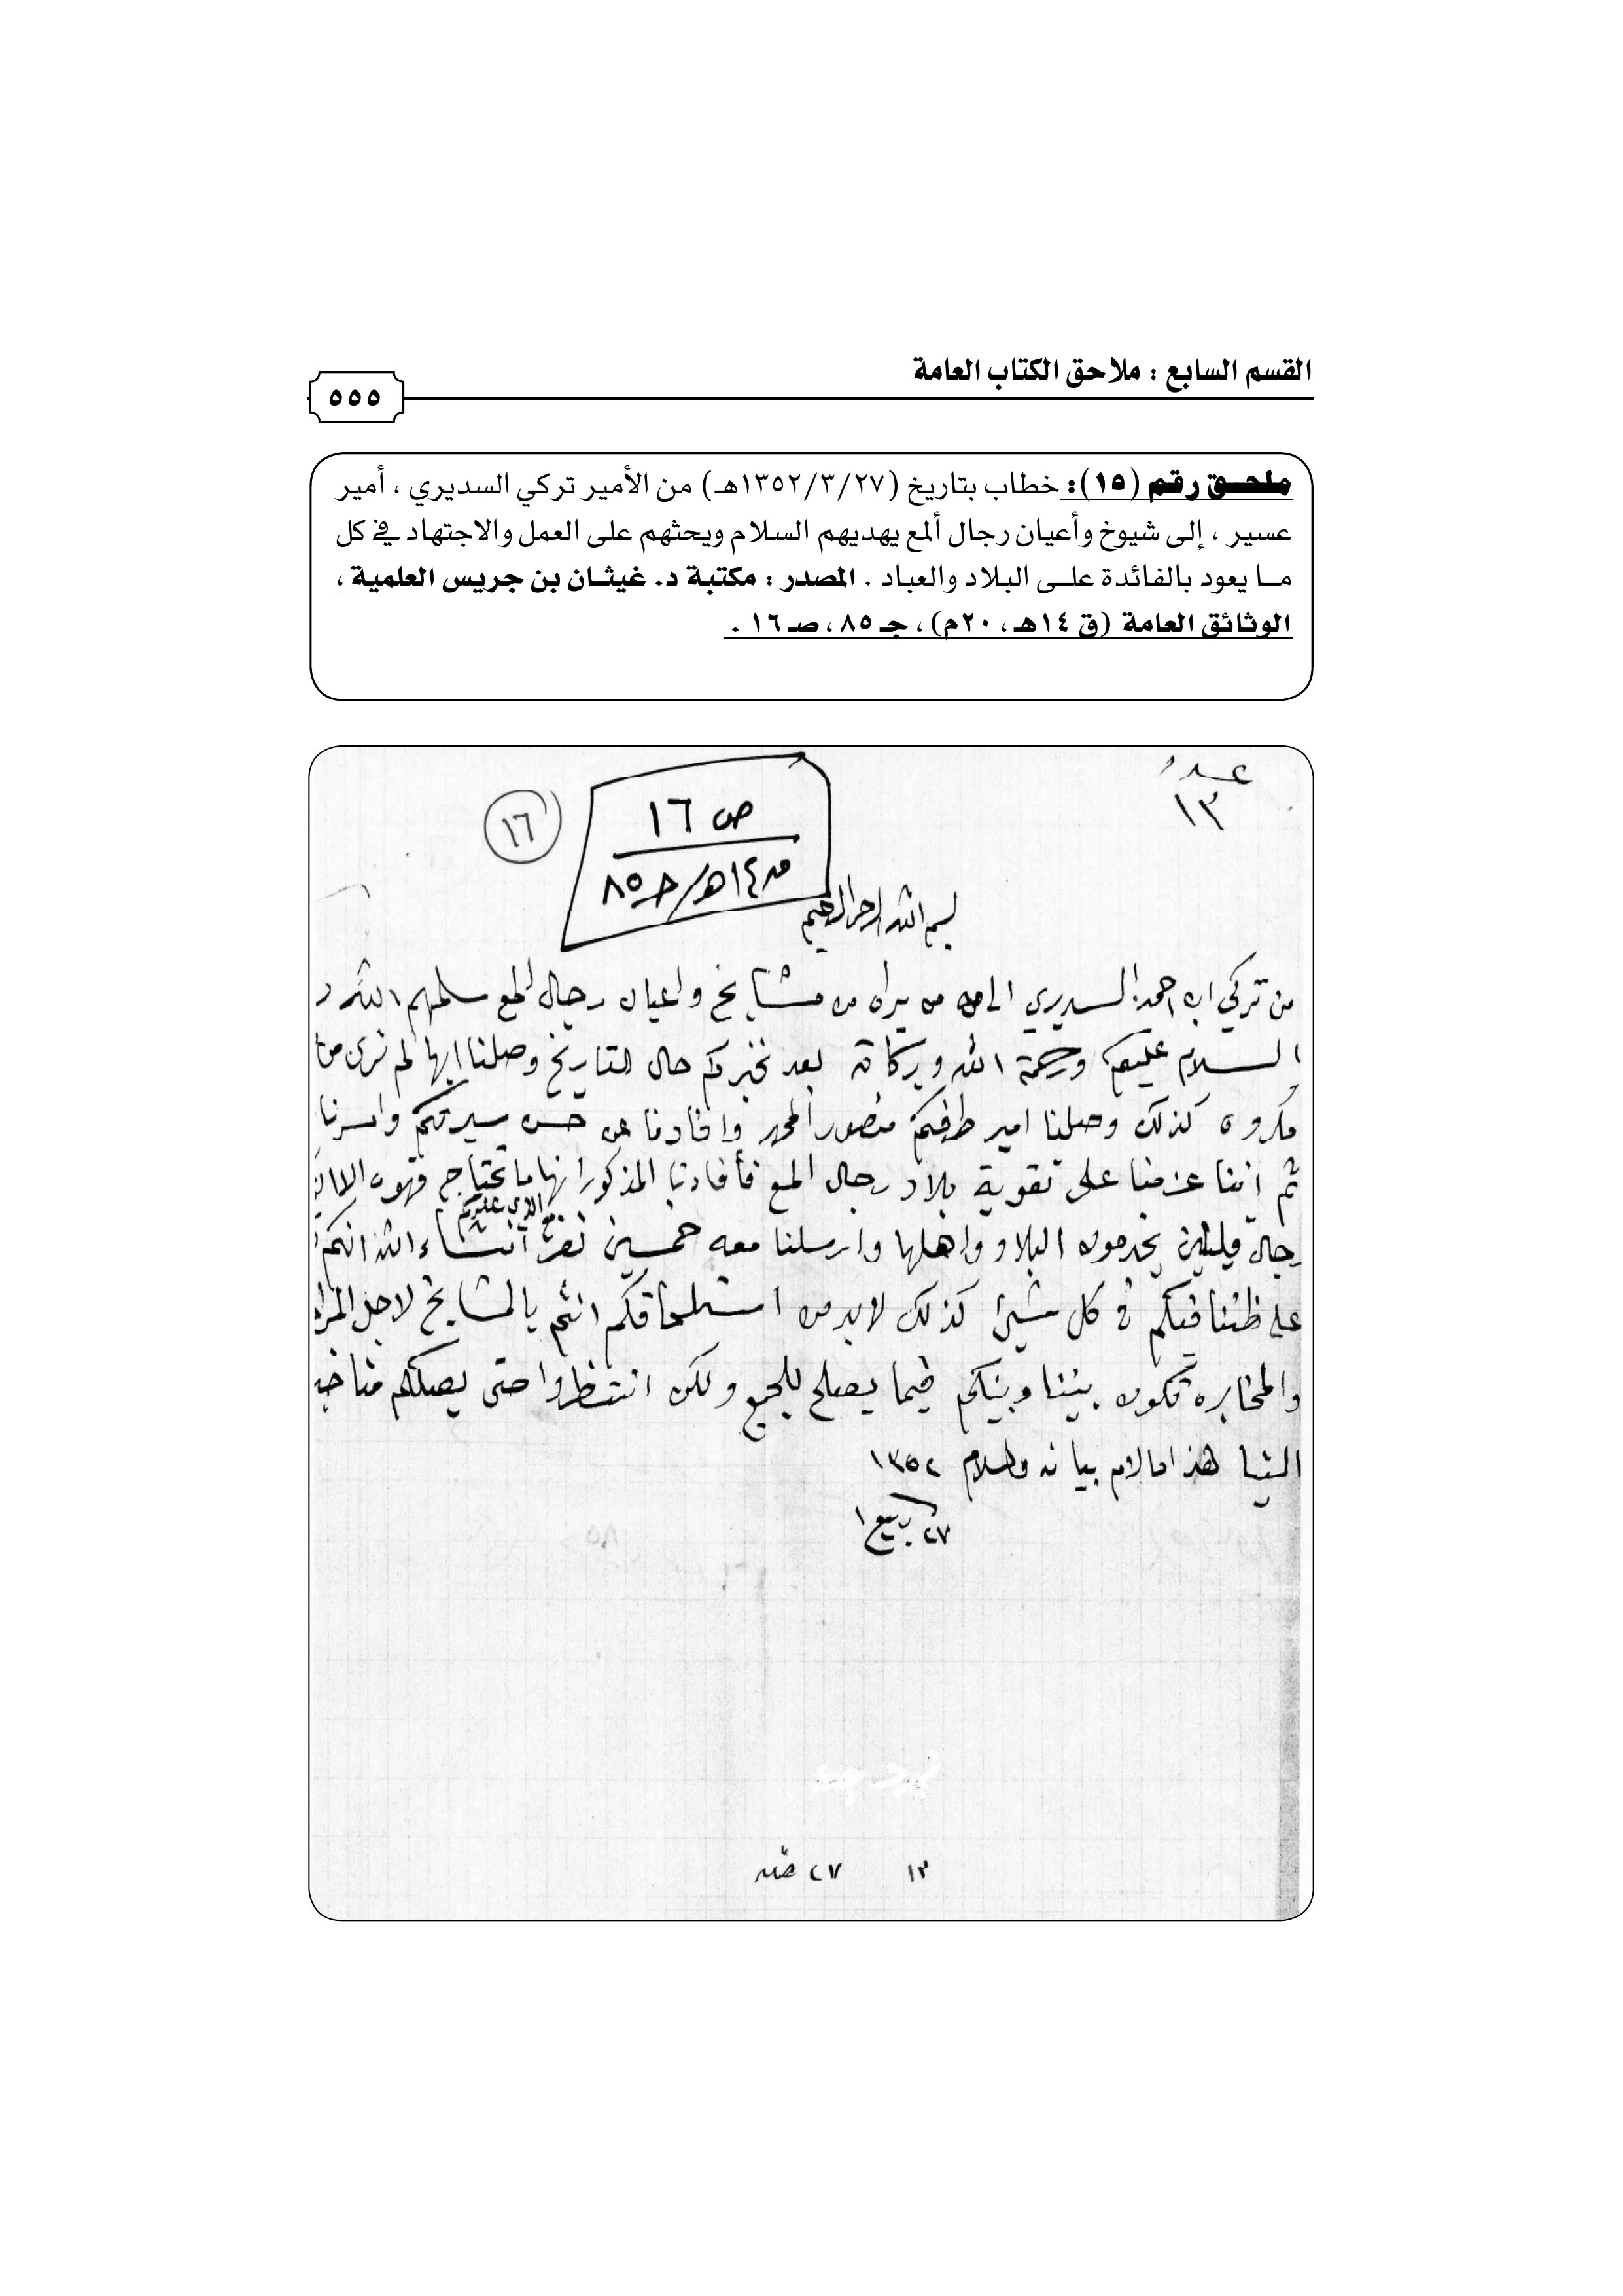 القسم السابع : ملاحق الكتاب العامة
٥٥٥
ملحـق رقم (١٥): خطاب بتاريخ (١٣٥٢/٣/٢٧هـ) من الأمير تركي السديري ، أمير
عسير ، إلى شيوخ وأعيان رجال ألمع يهديهم السلام ويحثهم على العمل والاجتهاد في كل
مـا يعود بالفائدة علـى البلاد والعباد . المصدر : مكتبة د. غيثـان بن جريس العلمية ،
الوثائق العامة (ق١٤هـ، ٢٠م)، جـ٨٥، صـ١٦ .
عدد
١٣
ص ١٦
ق١٤هـ/ جـ٨٥
١٦
بسم الله الرحمن الرحيم
من تركي ابن احمد السديري الى من يراه من مشايخ واعيان رجال المع سلمهم الله
السلام عليكم ورحمة الله وبركاته بعد نخبركم حال التاريخ وصلنا ابها لم نرى من
مكروه كذلك وصلنا امير طرفكم منصور وافادنا عن حسن سيرتكم واسرنا
ثم اننا عزمنا على تقوية بلاد رجال المع فأفادنا المذكور انها ما تحتاج قهوه
رجال قليلين يخدمون البلاد واهلها وارسلنا معه خمسين نفر انشاء الله انكم
مع الذي عليكم
على ظننا فيكم في كل كذلك لابد من استلحاقكم انتم يالمشايخ لاجل
والمخابره تكون بيننا وبينكم فيما يصلح للجميع ولكن انتظروا حتى يصلكم منا
الينا هذا مالزم بيانه والسلام ١٣٥٢
٢٧ ربيع ١
١٣ ٢٧